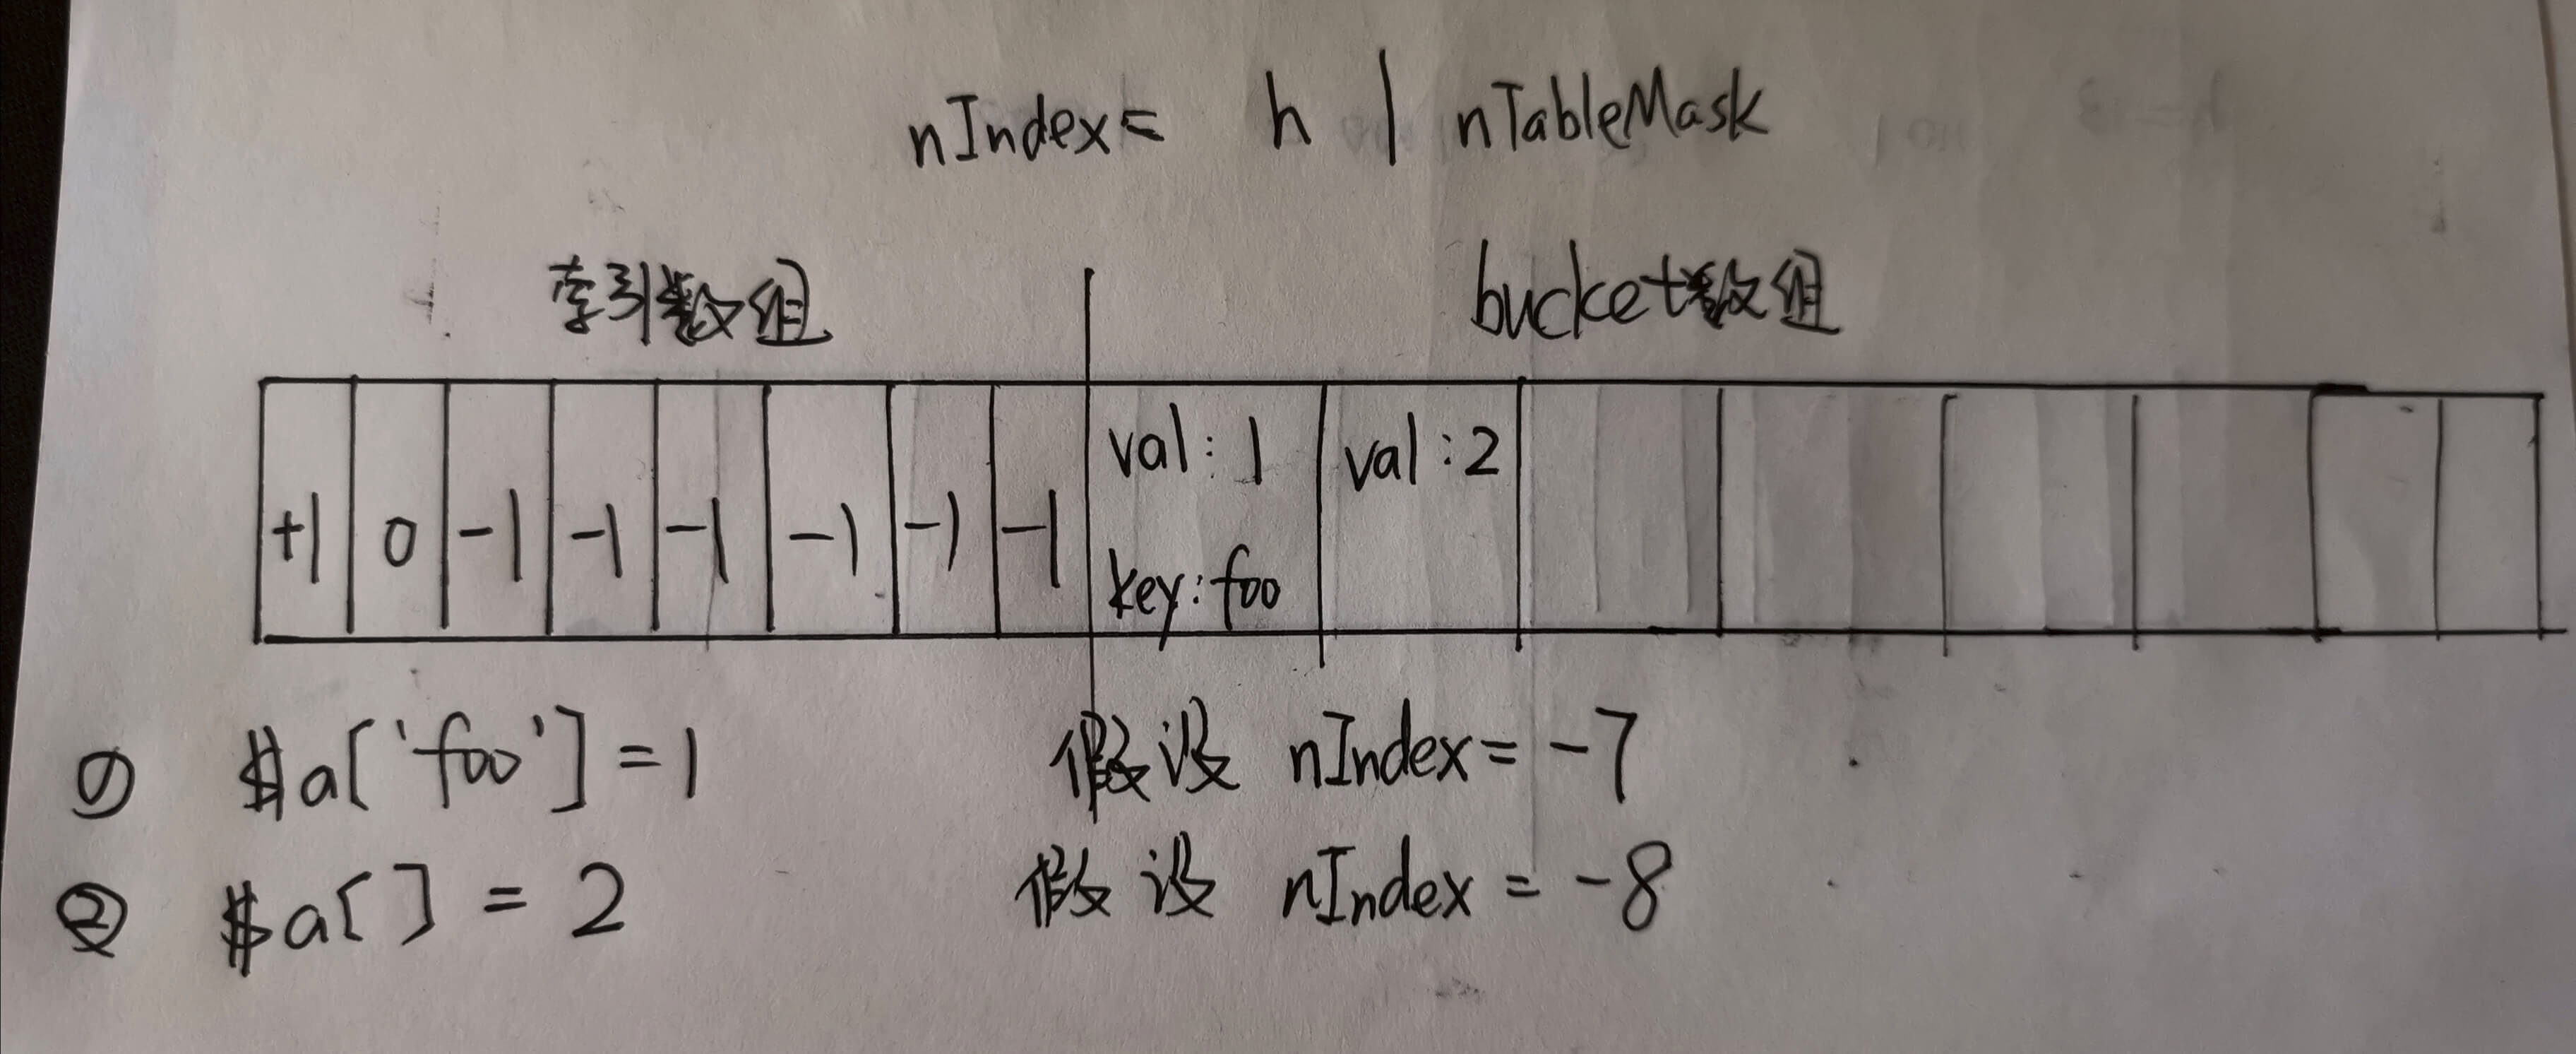 nIndex= h | nTableMask
索引数组 bucket数组
+1 0 -1 -1 -1 -1 -1 -1 val:1 val:2
key:foo
① $a['foo']=1 假设 nIndex=-7
② $a[]=2 假设 nIndex=-8